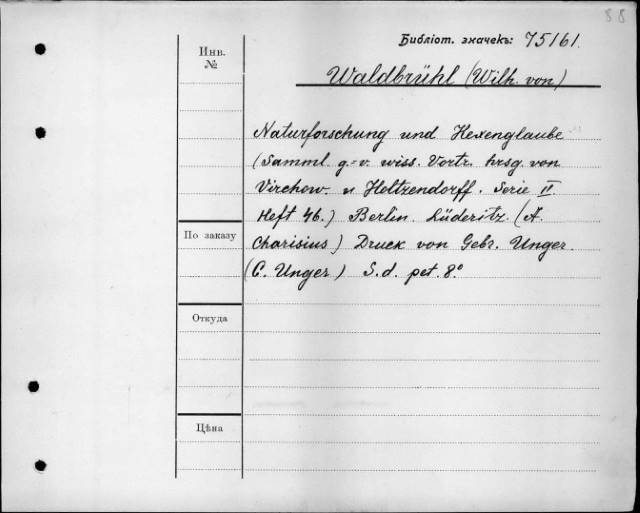 88
Библіот. значекъ: 75161.
Инв.
№
Waldbrühl (Wilh. von)
Naturforschung und Hexenglaube
(Samml. g.-v. wiss. Vortr. hrsg. von
Virchow. u Holtzendorff. Serie II
Heft 46.) Berlin. Lüderitz. (A.
По заказу
Charisius) Druck von Gebr. Unger.
(C. Unger.) S.d. pet. 8.º
Откуда
Цѣна